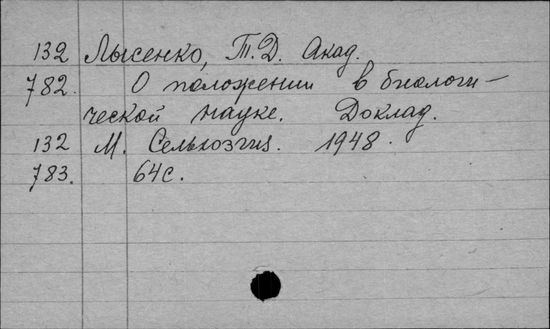 132 Лысенко, Т.Д. Акад.
782. О положении в биологи-
ческой науке. Доклад.
132 М. Сельхозгиз. 1948.
783. 64с.